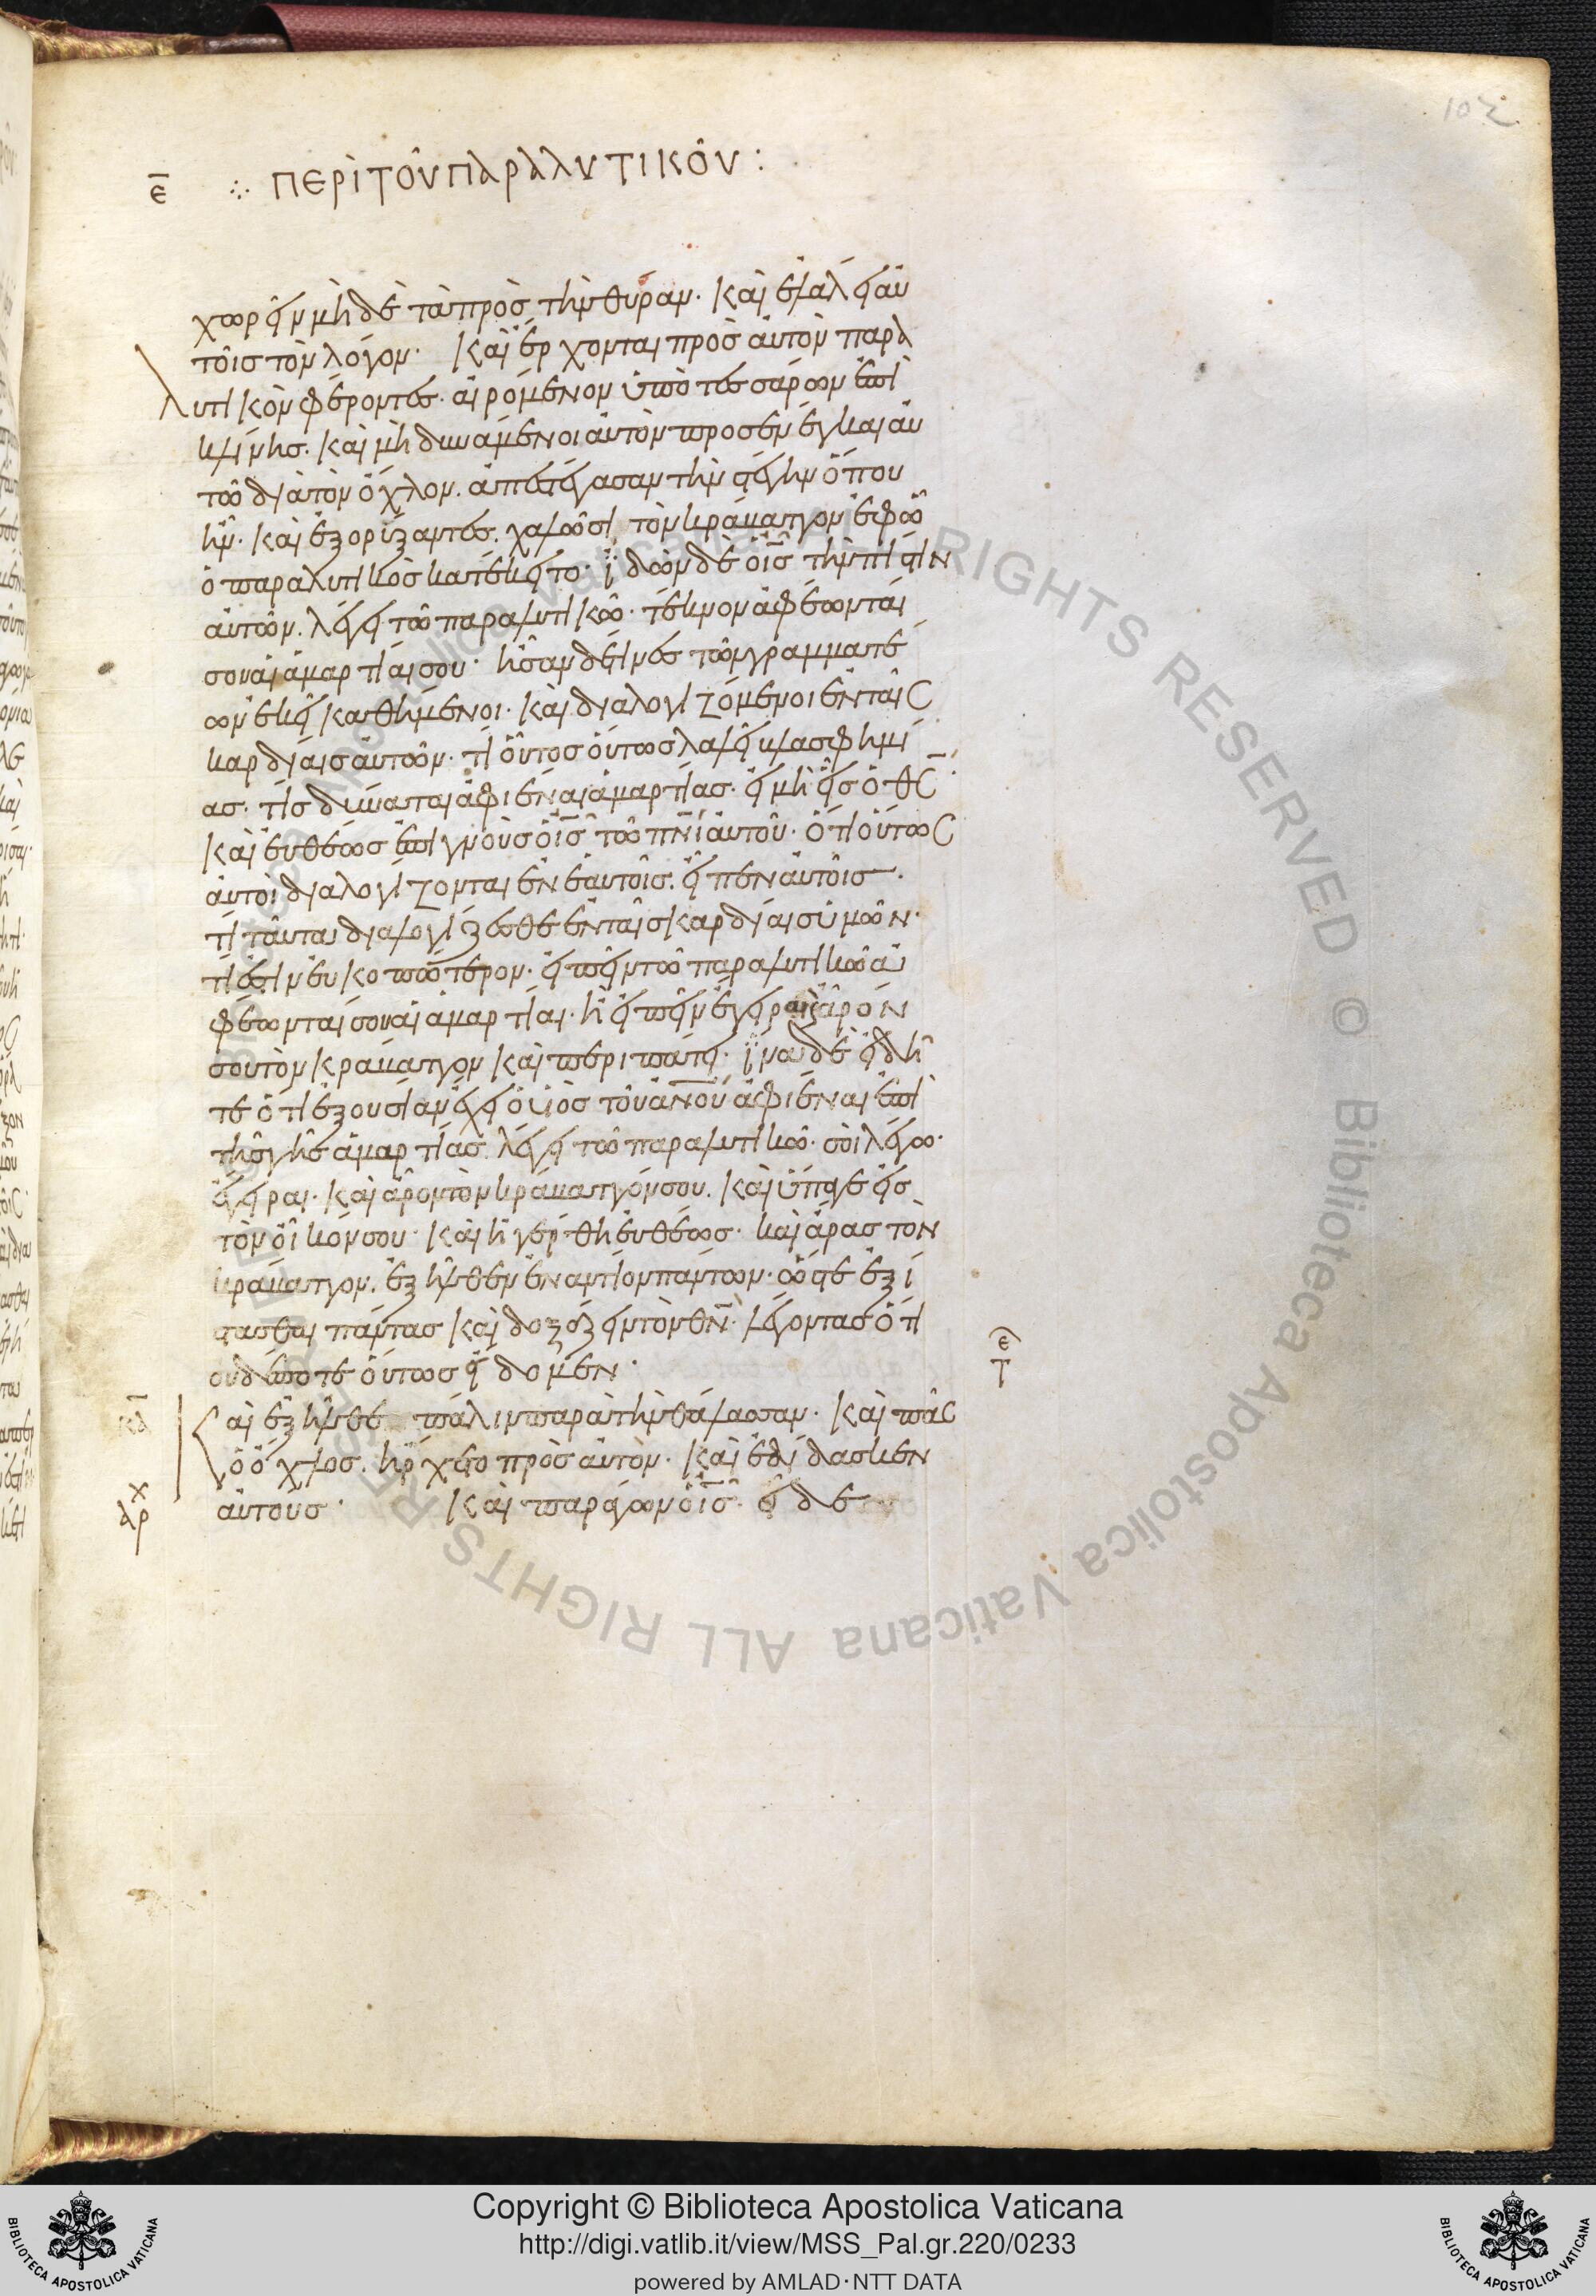 102
ε̅ ⁘ περὶ τοῦ παραλυτικοῦ :
χωρεῖν μὴ δὲ τὰ πρὸς τὴν θύραν· καὶ ἐλάλει αὐ
τοῖς τὸν λόγον· καὶ ἔρχονται πρὸς αὐτὸν παρα
λυτικὸν φέροντες· αἰρόμενον ὑπὸ τεσσάρων ἐπὶ
κλίνης. καὶ μὴ δυνάμενοι αὐτὸν προσενέγκαι αὐ
τῶ διὰ τὸν ὄχλον. ἀπεστέγασαν τὴν στέγην ὅπου
ἦν· καὶ ἐξορύξαντες. χαλῶσι τὸν κράβαττον ἐφ ὧ
ὁ παραλυτικὸς κατέκειτο· ἰδὼν δὲ ὁ ι̅ς̅ τὴν πίστιν
αὐτῶν. λέγει τῶ παραλυτικῶ· τέκνον ἀφέωνταί
σου αἱ ἁμαρτίαι σου· ἦσαν δέ τινες τῶν γραμματέ
ων ἐκεῖ καθήμενοι· καὶ διαλογιζόμενοι ἐν ταῖς
καρδίαις αὐτῶν· τί οὗτος οὕτως λαλεῖ βλασφημί
ας· τίς δύναται ἀφιέναι ἁμαρτίας· εἰ μὴ εἷς ὁ θ̅ς̅·
καὶ εὐθέως ἐπιγνοὺς ὁ ι̅ς̅ τῶ π̅ν̅ι̅ αὐτοῦ· ὅτι οὕτως
αὐτοὶ διαλογίζονται ἐν ἑαυτοῖς. εἶπεν αὐτοῖς·
τί ταῦτα διαλογίζεσθε ἐν ταῖς καρδίαις ὑμῶν·
τί ἐστιν εὐκοπώτερον· εἰπεῖν τῶ παραλυτικῶ ἀ
φέωνταί σου αἱ ἁμαρτίαι· ἢ εἰπεῖν ἔγειραι ἆρόν
σου τὸν κράβαττον καὶ περιπάτει· ἵνα δὲ εἰδῆ
τε ὅτι ἐξουσίαν ἔχει ὁ υἱὸς τοῦ α̅ν̅ο̅υ̅ ἀφιέναι ἐπὶ
τῆς γῆς ἁμαρτίας. λέγει τῶ παραλυτικῶ· σοὶ λέγω·
ἔγειραι· καὶ ἆρον τὸν κράβαττόν σου. καὶ ὕπαγε εἰς
τὸν οἶκόν σου· καὶ ἠγέρθη εὐθέως· καὶ ἄρας τὸν
κράβαττον. ἐξῆλθεν ἐναντίον πάντων· ὥστε ἐξί
στασθαι πάντας καὶ δοξάζειν τὸν θ̅ν̅· λέγοντας ὅτι
οὐδέποτε οὕτως εἴδομεν·
αἱ ἐξῆλθε πάλιν παρὰ τὴν θάλασσαν· καὶ πᾶς
ὁ ὄχλος. ἤρχετο πρὸς αὐτὸν· καὶ ἐδίδασκεν
αὐτούς· καὶ παράγων ὁ ι̅ς̅ εἶδε
Copyright © Biblioteca Apostolica Vaticana
http://digi.vatlib.it/view/MSS_Pal.gr.220/0233
powered by AMLAD·NTT DATA
BIBLIOTECA APOSTOLICA VATICANA
BIBLIOTECA APOSTOLICA VATICANA